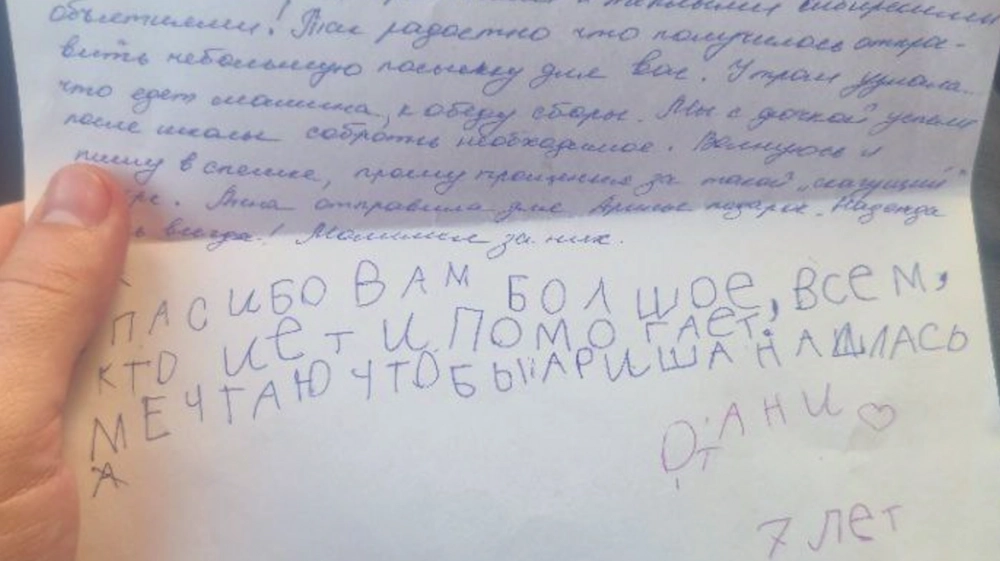 и тёплыми сибирскими
объятиями! Так радостно что получилось отпра-
вить небольшую посылку для вас. Утром узнала
что едет машина, к обеду сборы. Мы с дочкой успели
после школы собрать необходимое. Волнуюсь и
пишу в спешке, прошу прощения за такой "скачущий"
Аня отправила для Арины подарок. Надежда
всегда! Молимся за них.
ПАСИБО ВАМ БОЛШОЕ, ВСЕМ,
КТО ИЕТ И ПОМОГАЕТ.
МЕЧТАЮ ЧТОБЫ АРИША НАШЛАСЬ
А
ОТ АНИ
7 ЛЕТ